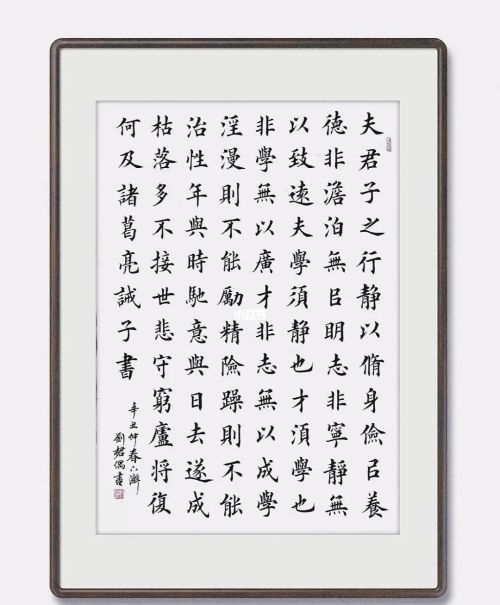 夫君子之行静以脩身儉㠯養
德非澹泊無㠯明志非寧靜無
以致遠夫學須静也才須學也
非學無以廣才非志無以成學
淫漫則不能勵精險躁則不能
治性年與時馳意與日去遂成
枯落多不接世悲守窮廬将復
何及諸葛亮誡子書
辛丑仲春
劉偶書
小红书